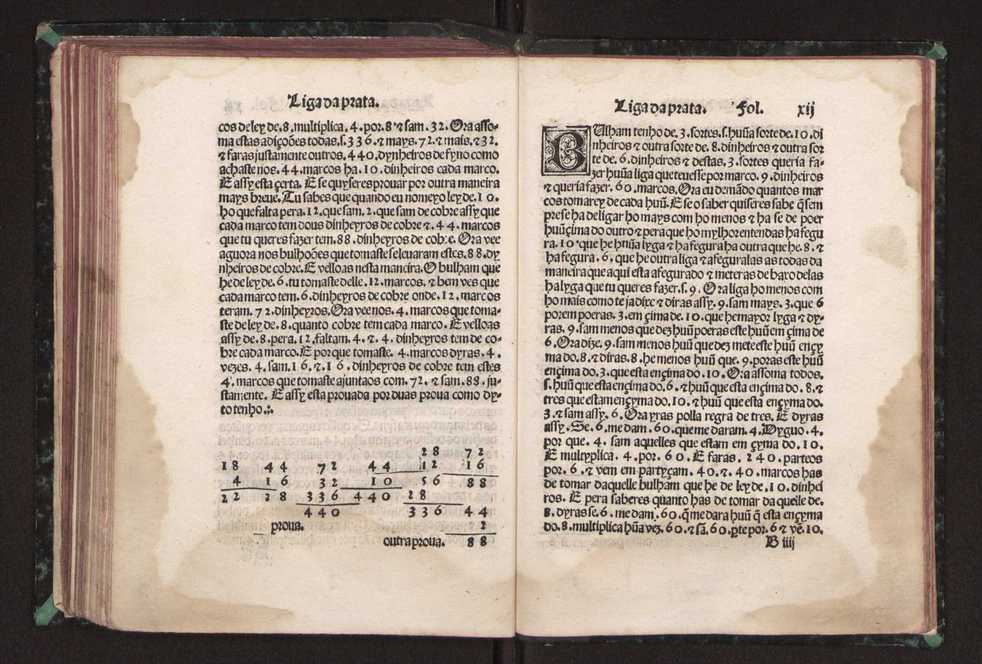 Liga da prata.
cos de ley de .8. multiplica .4. por .8. ⁊ sam .32. Ora asso-
ma estas adições todas .s. 336. ⁊ mays .72. ⁊ mais .⁊ 32.
⁊ faras justamente outros .440. dynheiros de fyno como
achaste nos .44. marcos ha .10. dinheiros cada marco.
E assy esta çerta. E se quyseres prouar por outra maneira
mays breue. Tu sabes que quando eu nomeyo ley de .10.
ho que falta pera .12. que sam .2. que sam de cobre assy que
cada marco tem dous dinheyros de cobre ⁊ .44. marcos
que tu queres fazer tem .88. dinheyros de cobre. Ora vee
aguora nos bulhoões que tomaste se leuaram estes .88. dy
nheiros de cobre. E velloas nesta maneira. O bulham que
he de ley de .6. tu tomaste delle .12. marcos. ⁊ bem ves que
cada marco tem .6. dinheyros de cobre onde .12. marcos
teram .72. dinheyros. Ora vee nos .4. marcos que toma-
ste de ley de .8. quanto cobre tem cada marco. E velloas
assy de .8. pera .12. faltam .4. ⁊ .4. dinheyros tem de co-
bre cada marco. E porque tomaste .4. marcos dyras .4.
vezes .4. sam .16. ⁊ .16. dinheyros de cobre tem estes
4. marcos que tomaste ajuntaos com .72. ⁊ sam .88. ju-
stamente. E assy esta prouada por duas proua como dy-
to tenho.
28 72
18 44 72 44 12 16
4 16 32 10 56 88
22 28 336 440 28
440 336 44
proua. 2
outra proua. 88
Liga da prata. Fol. xij
BUlham tenho de .3. sortes .s. huũa sorte de .10. di
nheiros ⁊ outra sorte de .8. dinheiros ⁊ outra sor
te de .6. dinheiros ⁊ destas .3. sortes queria fa-
zer huũa liga que teuesse por marco .9. dinheiros
⁊ queria fazer .60. marcos. Ora eu demãdo quantos mar
cos tomarey de cada huũ. E se o saber quiseres sabe q̃ sem
prese ha de ligar ho mays com ho menos ⁊ ha se de poer
huũ çima do outro ⁊ pera que ho mylhor entendas ha fegu
ra .10. que he huũa lyga ⁊ ha fegura ha outra que he .8. ⁊
ha fegura .6. que he outra liga ⁊ afeguralas as todas da
maneira que aqui esta afegurado ⁊ meteras de baxo delas
ha lyga que tu queres fazer .s. 9. Ora liga ho menos com
ho mais como te ja dixe ⁊ diras assy .9. sam mays .3. que 6
porem poeras .3. em çima de .10. que he mayor lyga ⁊ dy-
ras .9. sam menos que dez huũ poeras este huũ em çima de
6. Ora dize .9. sam menos huũ que dez mete este huũ ençy
ma do .8. ⁊ diras .8. he menos huũ que .9. poras este huũ
ençima do .3. que esta ençima do .10. Ora assoma todos.
.s. huũ que esta ençima do .6. ⁊ huũ que esta ençima do .8. ⁊
tres que estam ençyma do .10. ⁊ huũ que esta ençyma do.
3. ⁊ sam assy .6. Ora yras polla regra de tres. E dyras
assy. Se .6. me dam .60. que me daram .4. Dyguo .4.
por que .4. sam aquelles que estam em çyma do .10.
E multyplica .4. por .60. E faras .240. parteos
por .6. ⁊ vem em partyçam .40. ⁊ .40. marcos has
de tomar daquelle bulham que he de ley de .10. dinhei
ros. E pera saberes quanto has de tomar da quelle de.
8. dyras se .6. me dam .60. q̃ me dara huũ q̃ esta ençyma
do .8. multiplica hũa vez .60. ⁊ sã .60. parte por .6 ⁊ vẽ .10.
B iiij